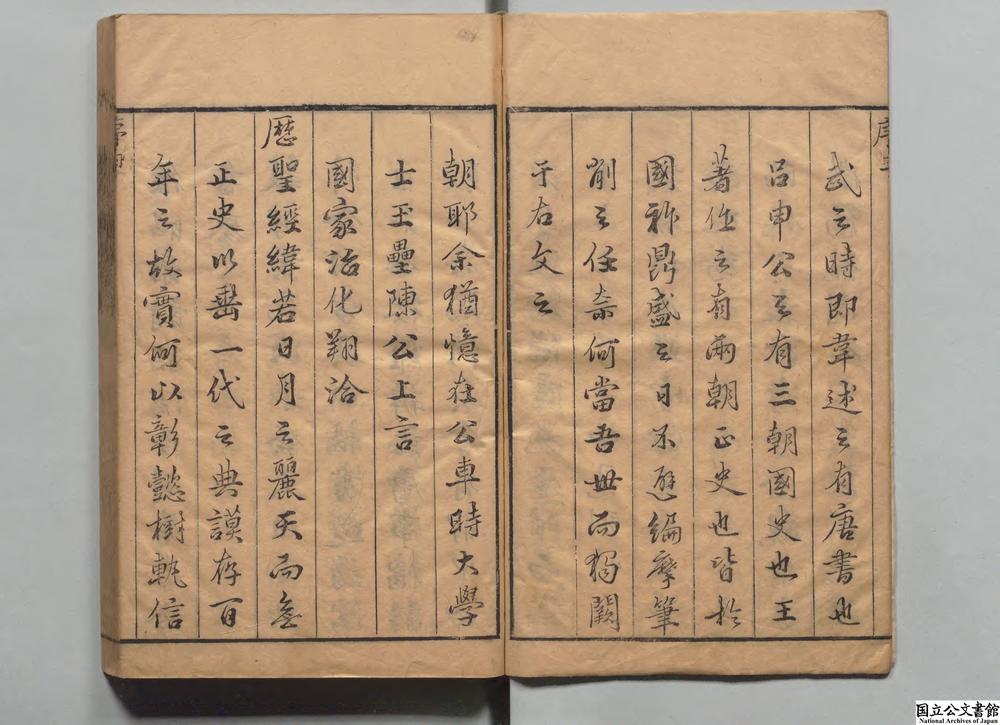 序三
武之時即韋述之有唐書也
呂申公之有三朝國史也王
著作之有兩朝正史也皆於
國祚鼎盛之日不憖編摩筆
削之任柰何當吾世而獨闕
于右文之
朝耶余猶憶在公車時大學
士玉壘陳公上言
國家治化翔洽
歷聖經緯若日月之麗天而無
正史以勒一代之典謨存百
年之故實何以彰懿樹軌信
序四
国立公文書館
National Archives of Japan